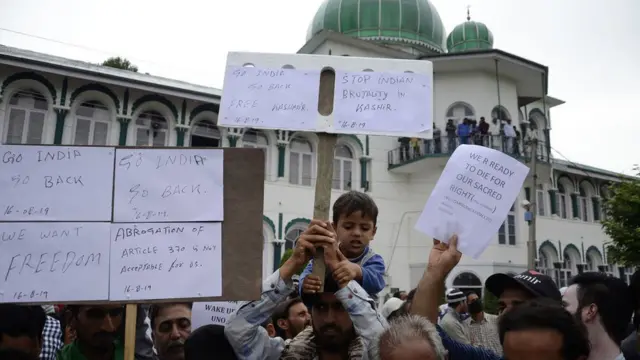 GO INDIA
GO BACK
16-08-19
GO INDIA
GO BACK.
WE WANT
FREEDOM
16-8-19
ABROGATION OF
ARTICLE 370 is NOT
ACCEPTABLE FOR US.
16-8-19
GO INDIA
GO BACK
FREE KASHMIR
STOP INDIAN
BRUTALITY IN
KASMIR.
16-8-19
WE R READY
TO DIE FOR
OUR SACRED
RIGHT!
WAKE U